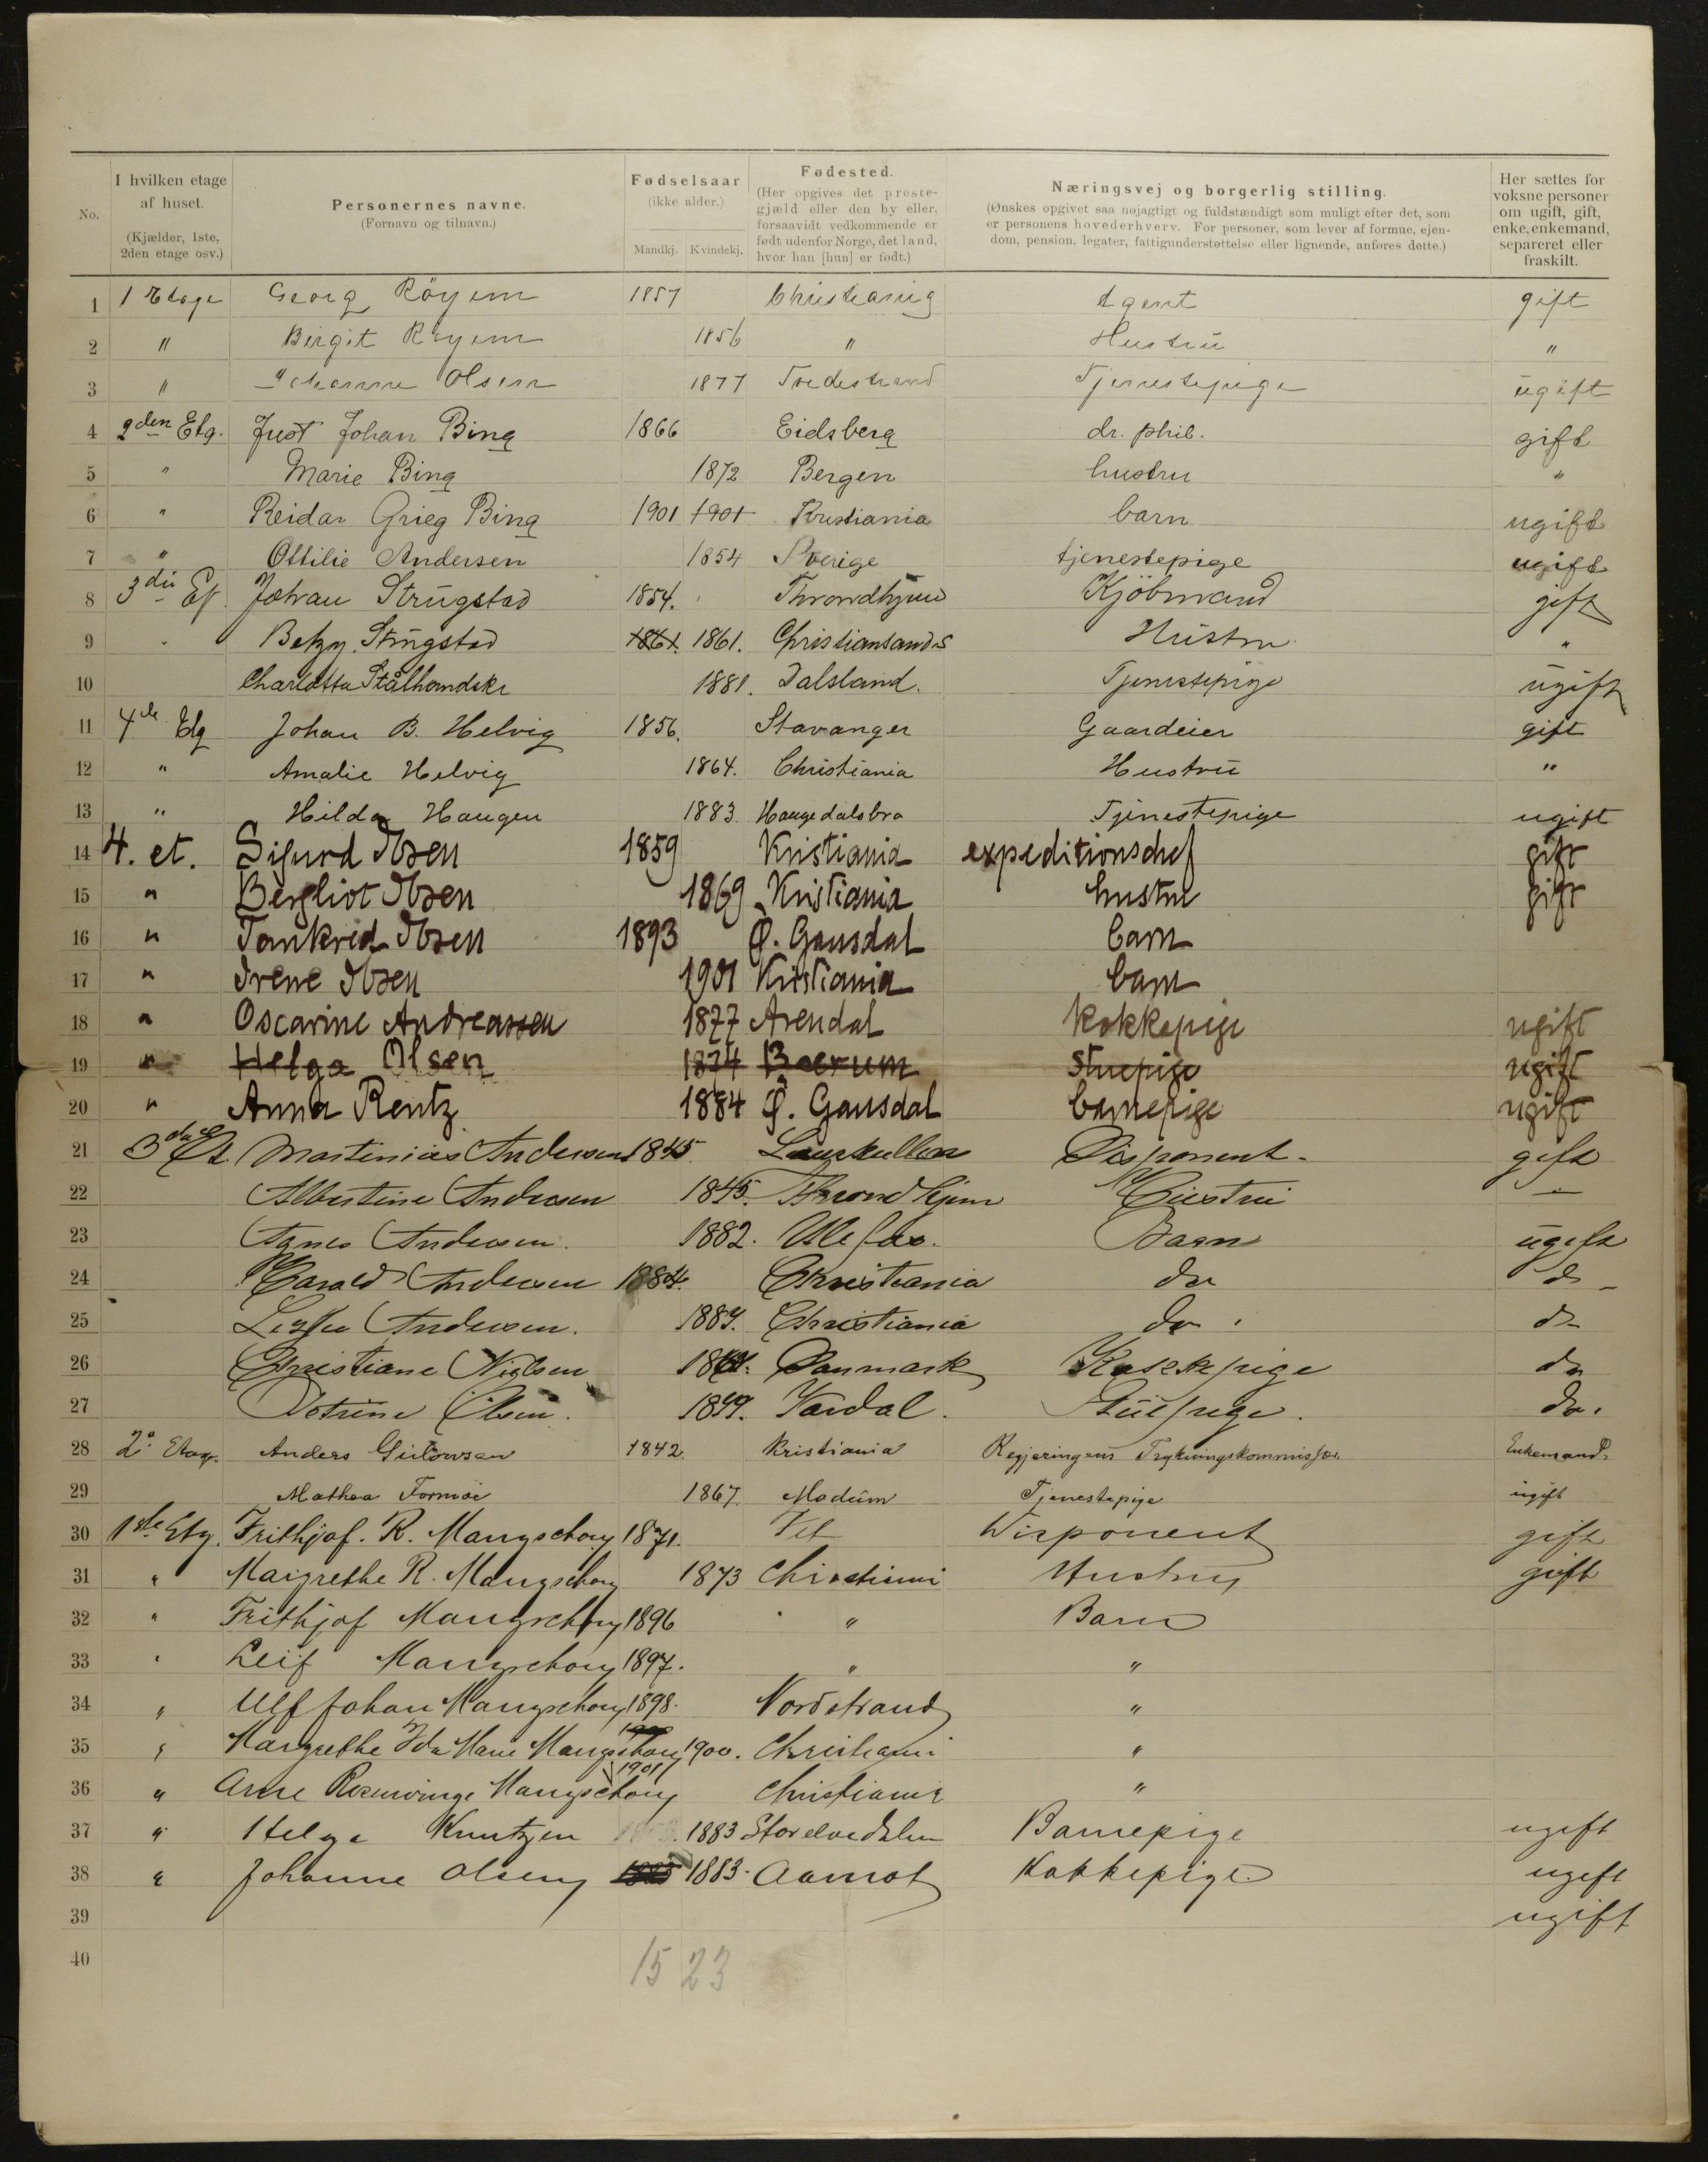 No.
I hvilken etage af huset. (Kjælder, 1ste, 2den etage osv.)
Personernes navne. (Fornavn og tilnavn.)
Fødselsaar (ikke alder.) Mandkj. Kvindekj.
Fødested. (Her opgives det prestegjæld eller den by eller, forsaavidt vedkommende er født udenfor Norge, det land, hvor han [hun] er født.)
Næringsvej og borgerlig stilling. (Ønskes opgivet saa nøjagtigt og fuldstændigt som muligt efter det, som er personens hovederhverv. For personer, som lever af formue, ejendom, pension, legater, fattigunderstøttelse eller lignende, anføres dette.)
Her sættes for voksne personer om ugift, gift, enke, enkemand, separeret eller fraskilt.
1 1 Etage Georg Röyem 1857 Christiania Agent gift
2 " Birgit Röyem 1856 " Hustrü "
3 " Johanne Olsen 1877 Tvedestrand Tjenestepige ügift
4 2den Etg. Just Johan Bing 1866 Eidsberg dr. phil. gift
5 " Marie Bing 1872 Bergen hustru "
6 " Reidar Grieg Bing 1901 1901 Kristiania barn ugift
7 " Ottilie Andersen 1854 Sverige tjenestepige ugift
8 3die Et. Johan Strügstad 1854. Throndhjem Kjöbmand gift
9 " Betzy Strügstad 1861. 1861. Christiansand S Hüstru "
10 Charlotta Stålhandske 1881. Dalsland. Tjenestepige ügift
11 4de Etg Johan B. Helvig 1856. Stavanger Gaardeier gift
12 " Amalie Helvig 1864. Christiania Hustrü "
13 " Hilda Haugen 1883 Haugedalsbro Tjenestepige ugift
14 4. et. Sigurd Ibsen 1859 Kristiania expeditionschef gift
15 " Bergliot Ibsen 1869 Kristiania hustru gift
16 " Tankred Ibsen 1893 Ø. Gausdal barn
17 " Irene Ibsen 1901 Kristiania barn
18 " Oscarine Andreassen 1877 Arendal kokkepige ugift
19 " Helga Olsen 1874 Baerum stuepige ugift
20 " Anna Rentz 1884 Ø. Gausdal barnepige ugift
21 3die Et. Martinius Andersen 1845 Disponent. gift
22 Albertine Andersen 1845. Throndhjem Hüstrü
23 Agnes Andersen. 1882. Ulefos. Barn ügift
24 Harald Andersen 1884. Christiania do do
25 Andersen. 1887. Christiania do. do
26 Christiane Nielsen Danmark Kokkepige do
27 Petrine Olsen. Vardal. Stüepige. do.
28 2a Etage. Anders Gulowsen 1842. Kristiania Regjeringens Trykningskommissær Enkemand.
29 Mathea Formoe 1867. Modüm Tjenestepige ügift
30 1ste Etg. Frithjof. R. Mangschou 1871. Disponent gift
31 " Margrethe R. Mangschou 1873 Christiania Hustru gift
32 " Frithjof Mangschou 1896 " Barn
33 " Leif Mangschou 1897. " "
34 " Ulf Johan Mangschou 1898. Nordstrand "
35 " Margrethe Ida Marie Mangschou 1900 1900. Christiania "
36 " Arne Rosenvinge Mangschou 1901 Christiania "
37 " Helga Knutzen 1883 Storelvedalen Barnepige ugift
38 " Johanne Olsen 1883. Aamot Kokkepige ugift
39 ugift
40
15 23